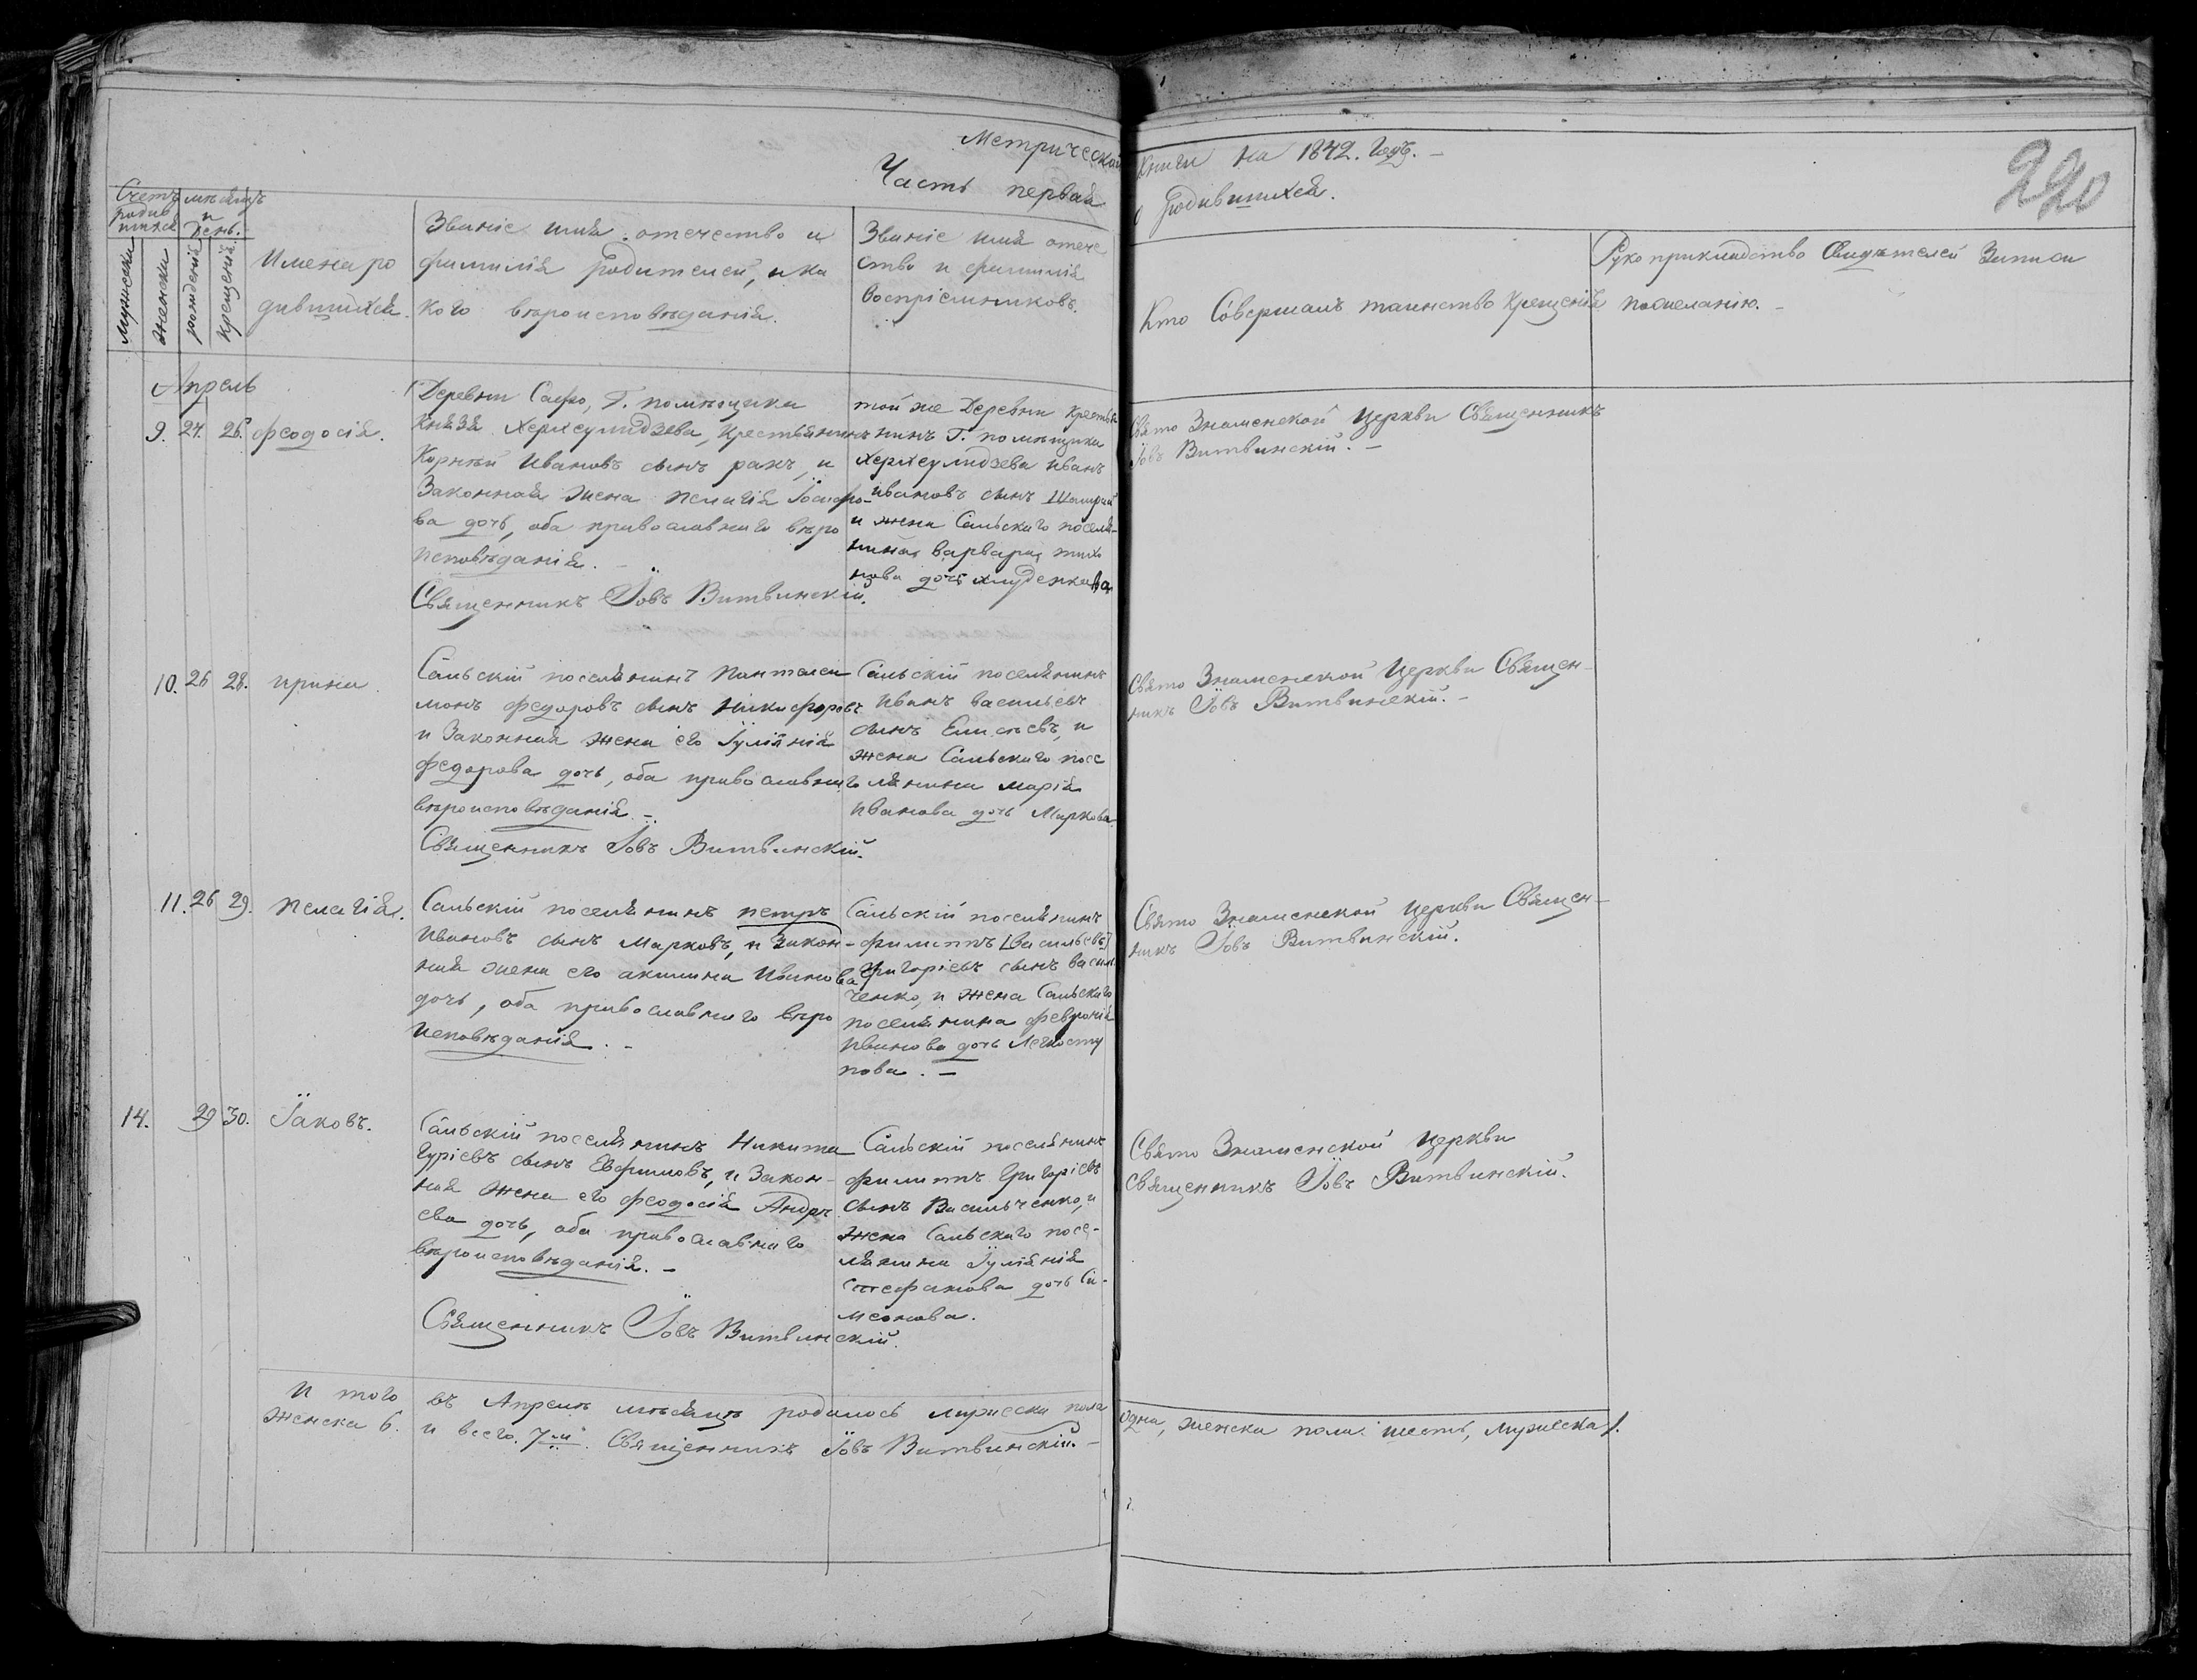 Метрической книги на 1842. Годъ. —
Часть первая о родившихся.
220
Счетъ родившихся
мѣсяцъ и День.
Мужески
женски
рожденія
крещенія
Имена ро
дившихся.
Званіе имя отечество и
фамилія родителей, и ка
кого вѣроисповѣданія.
Званіе имя отече
ство и фамилія
воспріемниковъ.
Кто Совершалъ таинство Крещенія
Рукоприкладство Свидѣтелей Записи
по желанію. —
Апрель
9. 24. 26. феодосія.
Деревни Сафо, Г. помѣщика
Князя Херхеулидзева, Крестьянинъ
Корнѣй Ивановъ сынъ ракъ, и
Законная жена пелагія Іосифо-
ва дочь, оба православнаго вѣро
исповѣданія. —
Священникъ Іовъ Витвинскій.
той же Деревни крестья
нинъ Г. помѣщика
Херхеулидзева Иванъ
Ивановъ сынъ
и жена Сальскаго поселя-
нина, варвара, тихо
нова дочь
Свято Знаменской Церкви Священникъ
Іовъ Витвинскій. —
10. 26 28. ирина.
Сальскій поселянинъ Пантелеи
монъ федоровъ сынъ никифоровъ
и Законная жена его Іуліянія
федорова дочь, оба православнаго
вѣроисповѣданія. —
Священникъ Іовъ Витвинскій.
Сальскій поселянинъ
Иванъ васильевъ
сынъ Елисѣевъ, и
жена Сальскаго посе
лянина марія
иванова дочь Маркова.
Свято Знаменской Церкви Священ-
никъ Іовъ Витвинскій. —
11. 26 29. пелагія.
Сальскій поселянинъ петръ
Ивановъ сынъ Марковъ, и Закон-
ная жена его акилина Иванова
дочь, оба православнаго вѣро
исповѣданія. —
Сальскій поселянинъ
филиппъ [васильевъ]
Григорієвъ сынъ васил
ченко, и жена Сальскаго
поселянина февронія
Иванова дочь Легкосту
пова. —
Свято Знаменской Церкви Священ-
никъ Іовъ Витвинскій.
14. 29 30. Іаковъ.
Сальскій поселянинъ Никита
Гуріевъ сынъ Евфимовъ, и Закон-
ная жена его феодосія Андрѣ
ева дочь, оба православнаго
вѣроисповѣданія. —
Священникъ Іовъ Витвинскій.
Сальскій поселянинъ
филиппъ Григоріевъ
сынъ Васильченко, и
жена Сальскаго посе-
лянина Іуліянія
стефанова дочь Си-
меонова.
Свято Знаменской Церкви
священникъ Іовъ Витвинскій.
И того въ Апрелѣ мѣсяцѣ родилось мужеска пола одна, женска пола шесть, Мужеска 1.
женска 6. и всего 7-м. Священникъ Іовъ Витвинскій. —